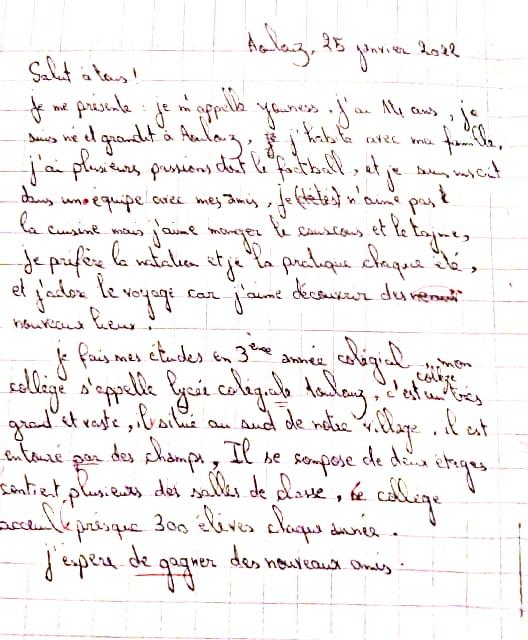 Aoulouz, 25 janvier 2022
Salut à tous !
Je me présente : je m'appelle youness, j'ai 14 ans, je
suis né et grandit à Aoulouz, j'habite avec ma famille,
j'ai plusieurs passions dont le football, et je suis inscrit
dans une équipe avec mes amis, je n'aime pas
la cuisine mais j'aime manger le couscous et le tajine,
je préfère la natation et je la pratique chaque été,
et j'adore le voyage car j'aime découvrir des
nouveaux lieux.
je fais mes études en 3ème année colégial, mon
collège s'appelle lycée colégiale Aoulouz, c'est un collège très
grand et vaste, il situé au sud de notre village, il est
entouré par des champs, Il se compose de deux étages
contient plusieurs des salles de classe, le collège
acceuil presque 300 élèves chaque année.
j'espère de gagner des nouveaux amis.